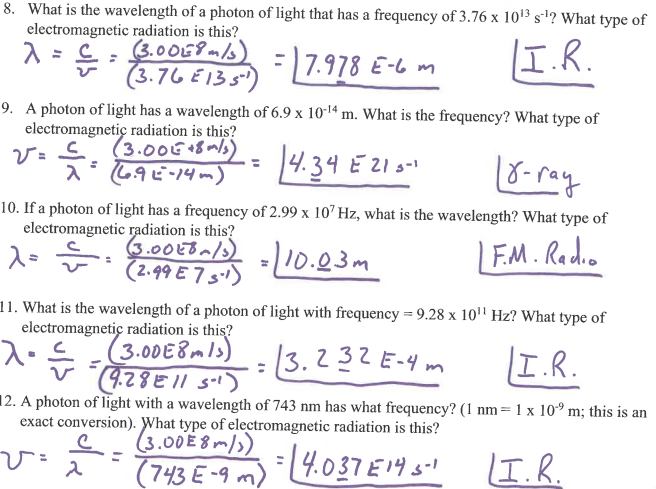 8. What is the wavelength of a photon of light that has a frequency of 3.76 x 10¹³ s⁻¹? What type of
electromagnetic radiation is this?
λ = c/ν = (3.00E8 m/s)/(3.76 E13 s⁻¹) = 7.978 E-6 m I.R.
9. A photon of light has a wavelength of 6.9 x 10⁻¹⁴ m. What is the frequency? What type of
electromagnetic radiation is this?
ν = c/λ = (3.00E+8 m/s)/(6.9 E-14 m) = 4.34 E 21 s⁻¹ γ-ray
10. If a photon of light has a frequency of 2.99 x 10⁷ Hz, what is the wavelength? What type of
electromagnetic radiation is this?
λ = c/ν = (3.00E8 m/s)/(2.99 E 7 s⁻¹) = 10.03 m F.M. Radio
11. What is the wavelength of a photon of light with frequency = 9.28 x 10¹¹ Hz? What type of
electromagnetic radiation is this?
λ = c/ν = (3.00E8 m/s)/(9.28E11 s⁻¹) = 3.232 E-4 m I.R.
12. A photon of light with a wavelength of 743 nm has what frequency? (1 nm = 1 x 10⁻⁹ m; this is an
exact conversion). What type of electromagnetic radiation is this?
ν = c/λ = (3.00E8 m/s)/(743 E-9 m) = 4.037 E14 s⁻¹ I.R.